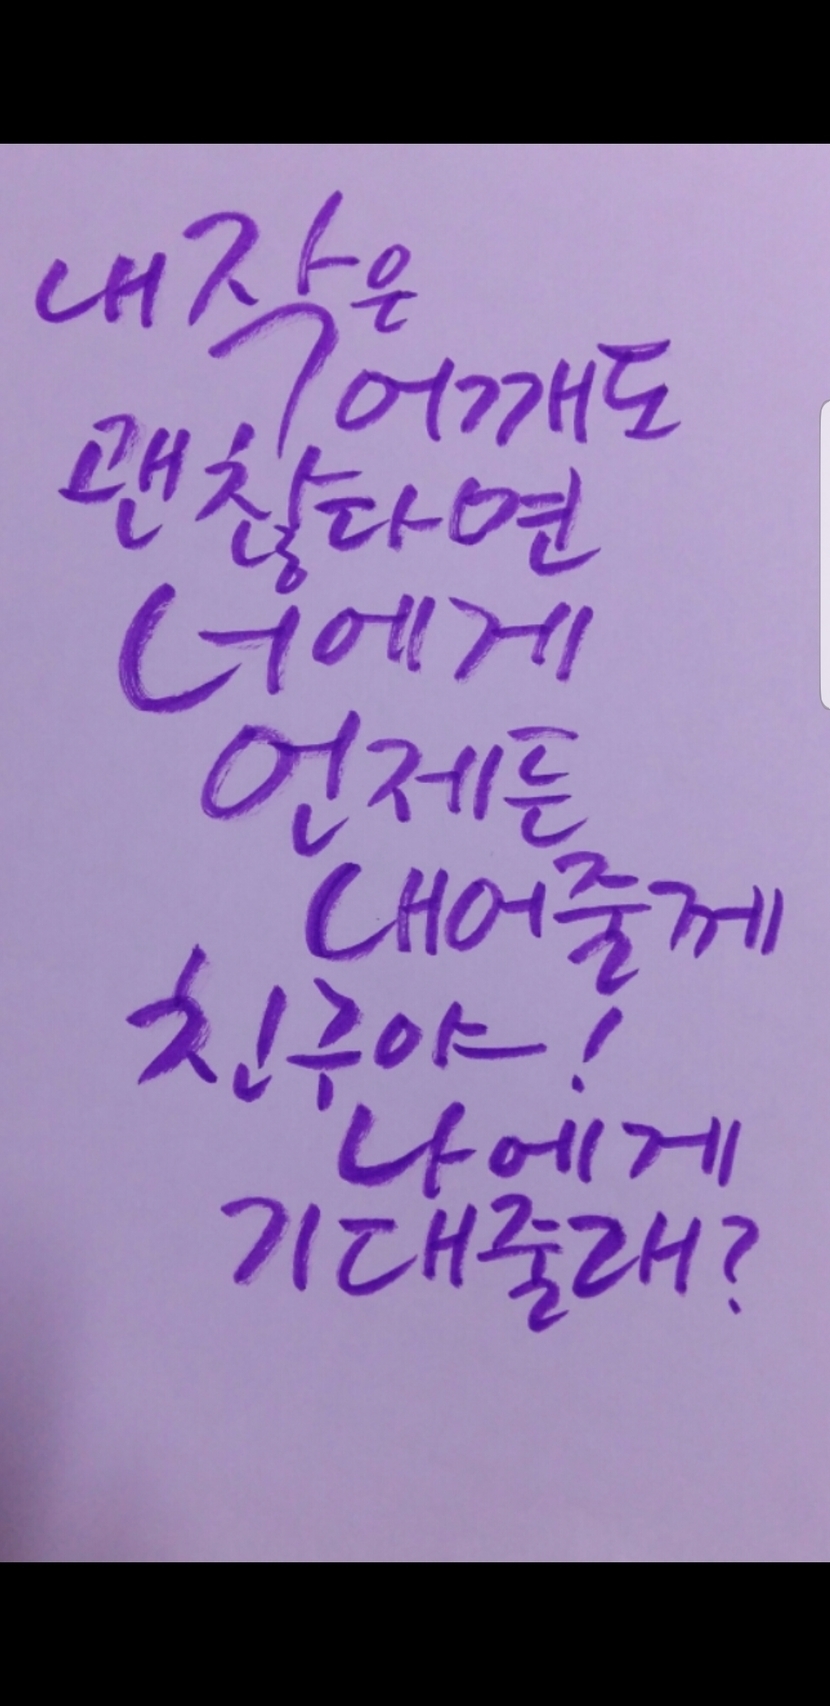 내 작은
어깨도
괜찮다면
너에게
언제든
내어줄께
친구야!
나에게
기대줄래?